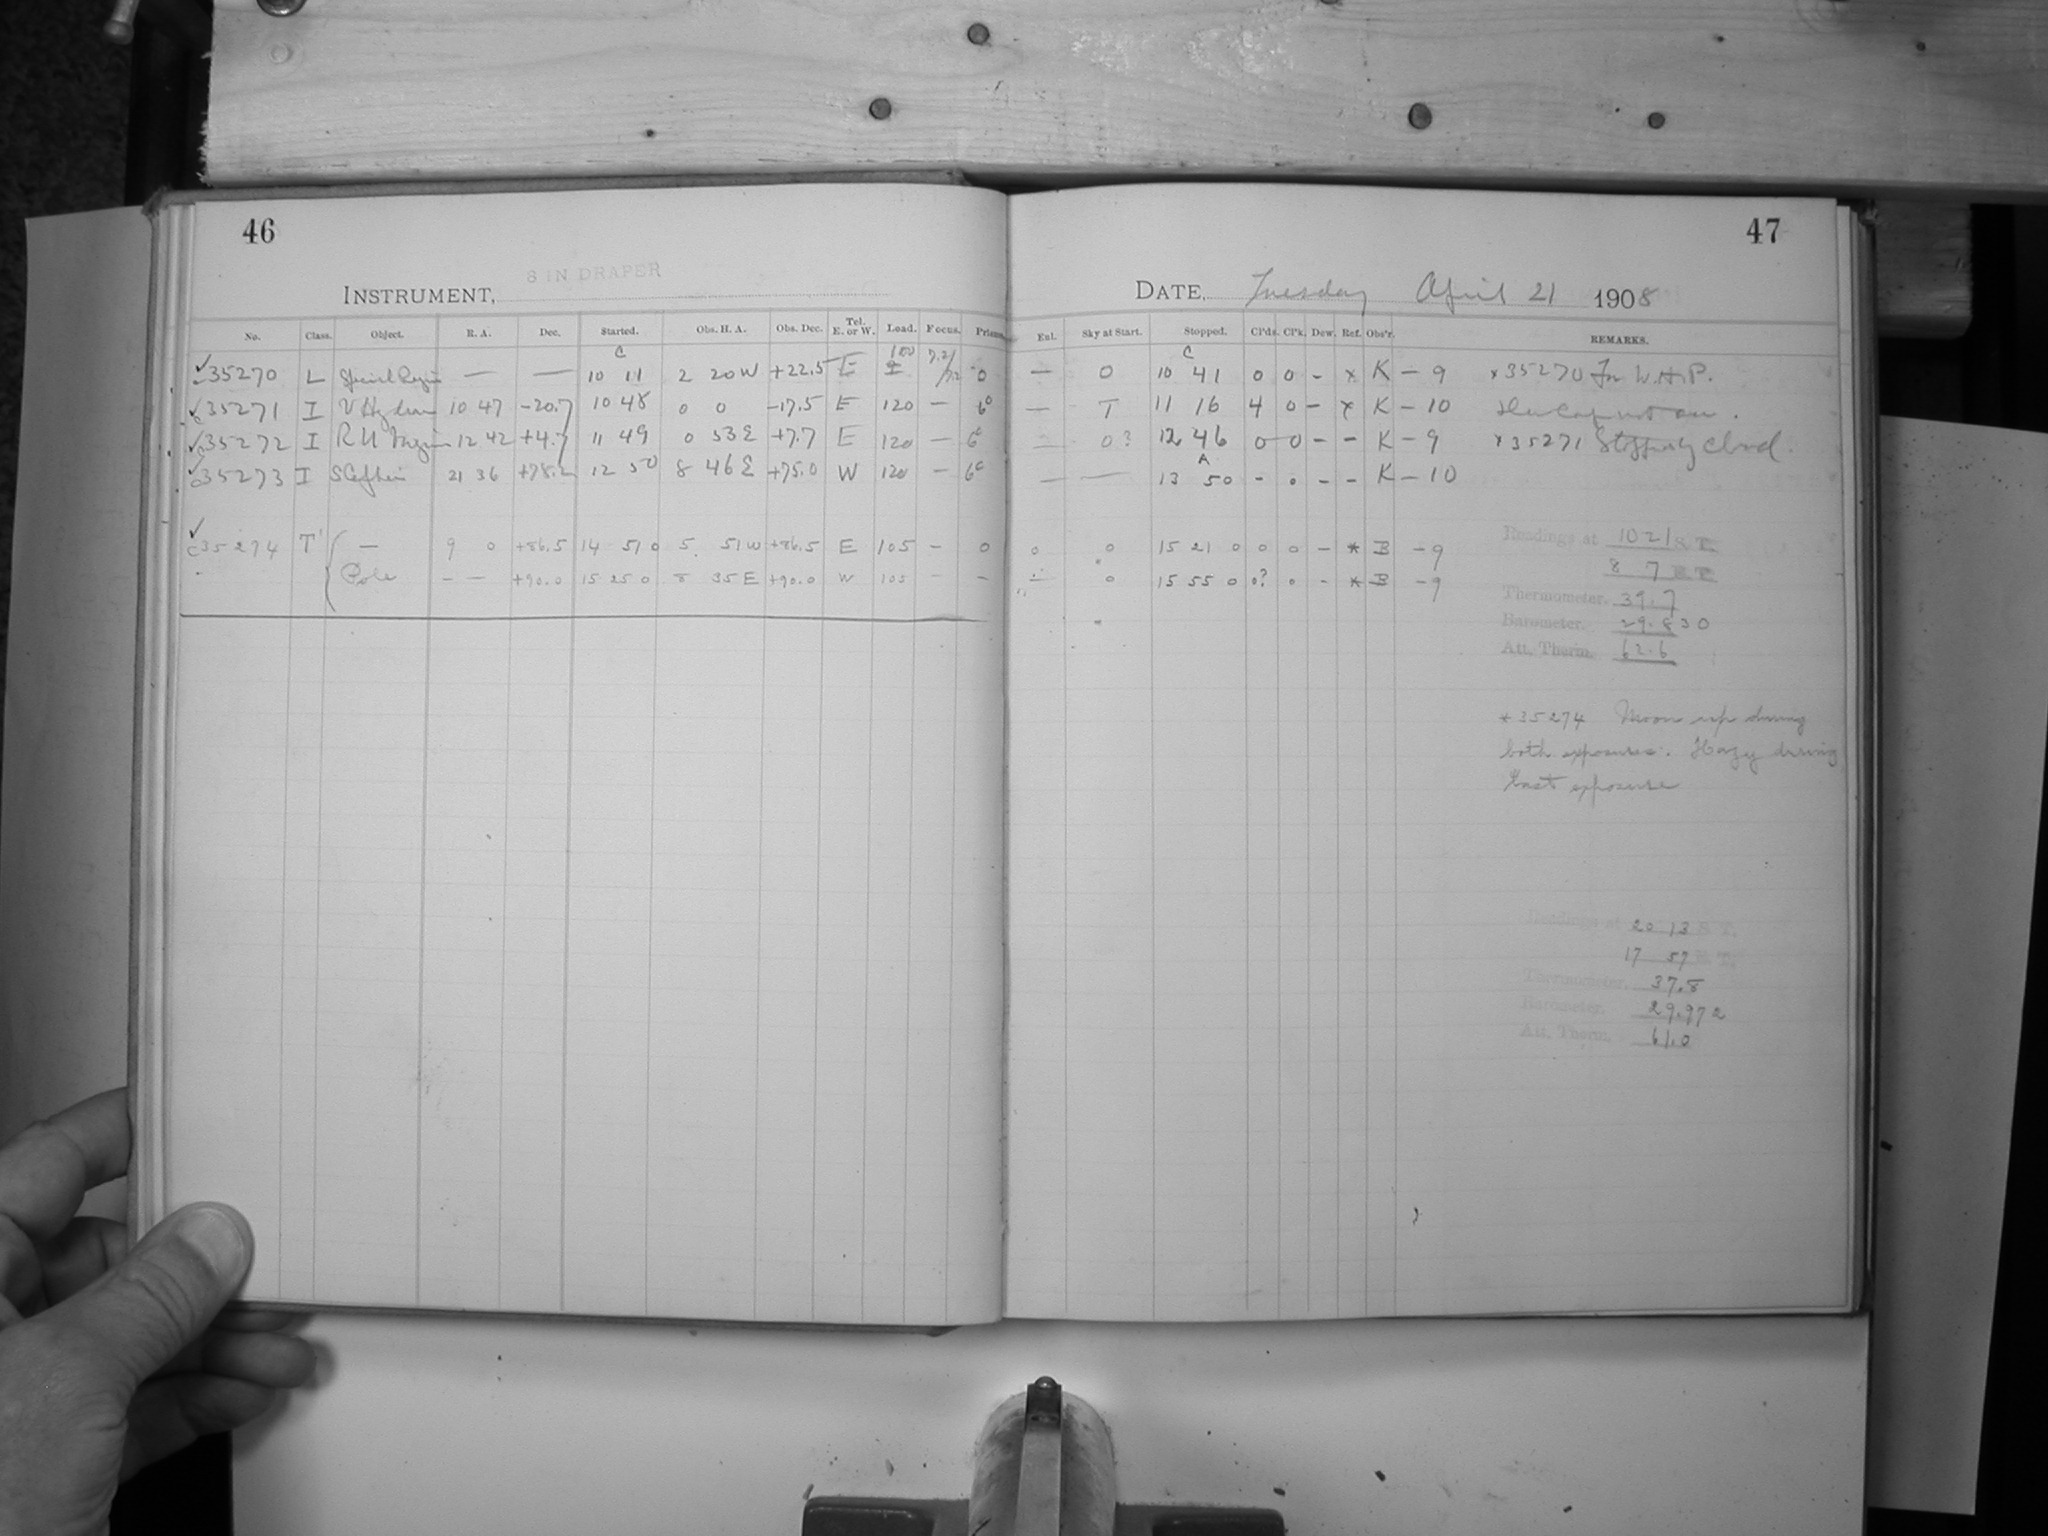 46
8 IN DRAPER
INSTRUMENT,
No. Class. Object. R. A. Dec. Started. Obs. H. A. Obs. Dec. Tel. E. or W. Load. Focus. Prisms.
35270 L — — 10 11 2 20 W +22.5 E 0
35271 I V Hydrae 10 47 -20.7 10 48 0 0 -17.5 E 120 — 6°
35272 I R U Virginis 12 42 +4.7 11 49 0 53 E +7.7 E 120 — 6°
35273 I S Cephei 21 36 +78.2 12 50 8 46 E +75.0 W 120 — 6°
35274 T' — 9 0 +86.5 14 51 0 5 51 W +86.5 E 105 — 0
Pole — — +90.0 15 25 0 8 35 E +90.0 W 105 — —
47
DATE, Tuesday April 21 1908
Enl. Sky at Start. Stopped. Cl'ds. Cl'k. Dew. Ref. Obs'r. REMARKS.
— 0 10 41 0 0 - x K - 9 x35270 For W.H.P.
— T 11 16 4 0 - x K - 10 Dew Cap not on.
0? 12 46 0 0 - - K - 9 x35271 Stopped by cloud.
— — 13 50 - 0 - - K - 10
0 0 15 21 0 0 0 - * B - 9
0 15 55 0 0? 0 - * B - 9
Readings at 10 21 S.T.
8 7
Thermometer. 39.7
Barometer. 29.830
Att. Therm. 62.6
*35274 Moon up during
both exposures. Hazy during
last exposure
Readings at 20 13 S.T.
17 57
Thermometer. 37.8
Barometer. 29.972
Att. Therm. 61.0